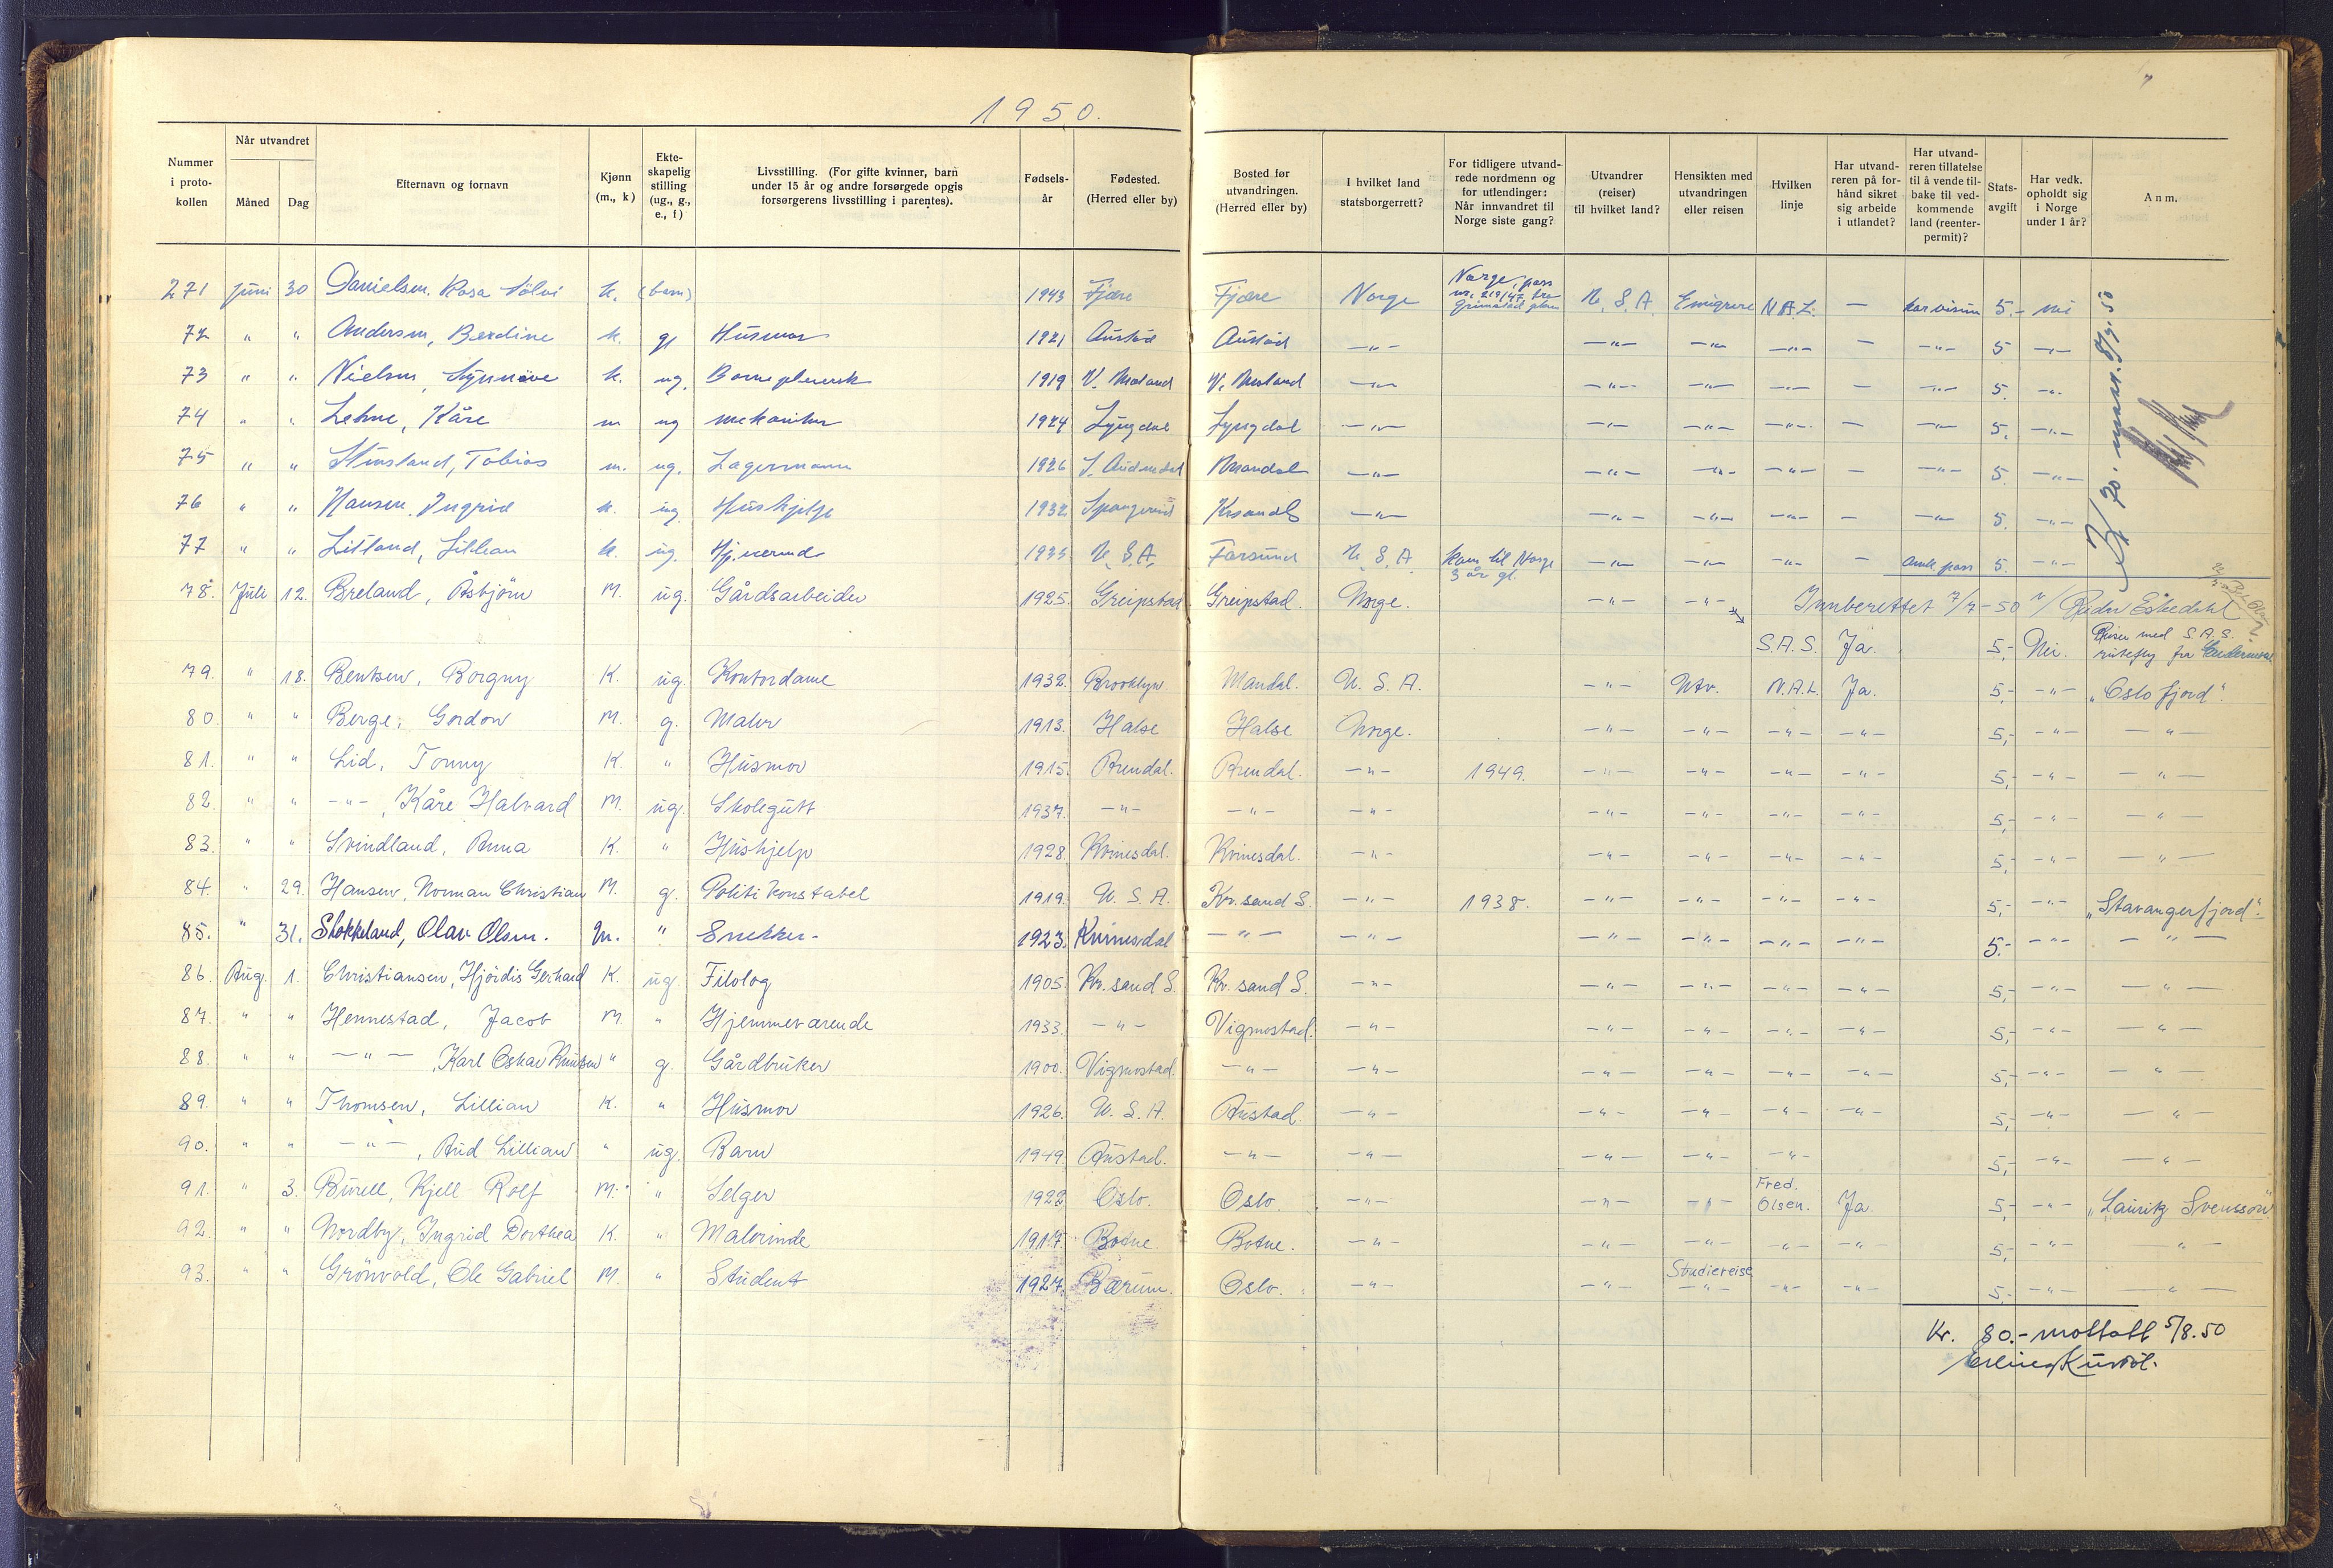 1950.
7
Nummer i proto-kollen | Når utvandret Måned Dag | Efternavn og fornavn | Kjønn (m., k) | Ekte-skapelig stilling (ug., g., e., f) | Livsstilling. (For gifte kvinner, barn under 15 år og andre forsørgede opgis forsørgerens livsstilling i parentes). | Fødsels-år | Fødested. (Herred eller by) | Bosted før utvandringen. (Herred eller by) | I hvilket land statsborgerrett? | For tidligere utvand-rede nordmenn og for utlendinger: Når innvandret til Norge siste gang? | Utvandrer (reiser) til hvilket land? | Hensikten med utvandringen eller reisen | Hvilken linje | Har utvand-reren på for-hånd sikret sig arbeide i utlandet? | Har utvand-reren tillatelse til å vende til-bake til ved-kommende land (reenter-permit)? | Stats-avgift | Har vedk. opholdt sig i Norge under 1 år? | Anm.
271 juni 30 Danielsen, Rosa Sölvi k. (barn) 1943 Fjære Fjære Norge Norge, pass nr. 219/47 fra Grimstad U.S.A. Emigrere N.A.L. — har visum 5.- nei
72 " " Andersen, Berdine k. g Husmor 1921 Austad Austad —"— —"— —"— —"— — —"— 5 —"—
73 " " Nielsen, Synnöve k. ug. Barnepleiersk 1919 V. Moland V. Moland —"— —"— —"— —"— — —"— 5. —"—
74 " " Lehne, Kåre m ug mekaniker 1924 Lyngdal Lyngdal —"— —"— —"— —"— — —"— 5. —"—
75 " " Stensland, Tobias m. ug. Lagermann 1926 S. Audnedal Mandal —"— —"— —"— —"— — —"— 5. —"—
76 " " Hansen, Ingrid k. ug. Hushjelp 1932 Spangereid Krsand S —"— —"— —"— —"— — —"— 5. —"—
77 " " Litland, Lillian k. ug. Hj.værende 1935 U.S.A. Farsund U.S.A. kom til Norge 3 år gl. —"— —"— —"— — Amk. pass 5. —"—
78. Juli 12. Breland, Åsbjörn M. ug. Gårdsarbeider 1925. Greipstad Greipstad. Norge. —"— —"— Innberettet 7/7-50
S.A.S. Ja. 5,- Nei. Reiser med S.A.S. rutefly fra
79. " 18. Bentsen, Borgny K. ug. Kontordame 1932. Brooklyn Mandal. U.S.A. —"— Utv. N.A.L. Ja. 5,- —"— "Oslofjord".
80. " " Berge, Gordon M. g. Maler 1913. Halse Halse Norge. —"— —"— —"— —"— 5,- —"— —"—
81. " " Lid, Tonny K. " Husmor 1915. Arendal. Arendal. —"— 1949. —"— —"— —"— —"— 5,- —"— —"—
82. " " —"—, Kåre Halvard M. ug. Skolegutt 1937. —"— —"— —"— —"— —"— —"— —"— 5,- —"— —"—
83. " " Svindland, Anna K. " Hushjelp 1928. Kvinesdal. Kvinesdal. —"— —"— —"— —"— —"— 5,- —"— —"—
84. " 29. Hansen, Norman Christian M. g. Politikonstabel 1919. U.S.A. Kr.sand S. —"— 1938. —"— —"— —"— —"— 5,- —"— "Stavangerfjord".
85. " 31. Stokkeland, Olav Olsen. M. " Snekker- 1923. Kvinesdal —"— —"— —"— —"— —"— —"— 5.- —"— —"—
86. Aug. 1. Christiansen, Hjördis Gerhard K. ug. Filolog 1905. Kr.sand S. Kr.sand S. —"— —"— —"— —"— —"— 5,- —"— —"—
87. " " Hennestad, Jacob M. " Hjemmeværende 1933. —"— Vigmostad. —"— —"— —"— —"— —"— 5,- —"— —"—
88. " " —"—, Karl Oskar Knutsen " g. Gårdbruker 1900. Vigmostad. —"— —"— —"— —"— —"— —"— 5,- —"— —"—
89. " " Thomsen, Lillian K. " Husmor 1926. U.S.A. Austad. —"— —"— —"— —"— —"— 5,- —"— —"—
90. " " —"—, Aud Lillian " ug. Barn 1949. Austad. —"— —"— —"— —"— —"— 5,- —"— —"—
91. " 3. Burell, Kjell Rolf M. " Selger 1922 Oslo. Oslo. —"— —"— —"— Fred. Olsen. Ja. 5,- —"— "Lauritz Svensson"
92. " " Nordby, Ingrid Dorthea K. " Malerinde 1917. Botne. Botne. —"— —"— —"— —"— —"— 5,- —"— "—
93. " " Grönvold, Ole Gabriel M. " Student 1927. Bærum. Oslo. —"— —"— Studiereise —"— —"— —"— 5,- —"— —"—
Kr. 80.- mottatt 5/8.50